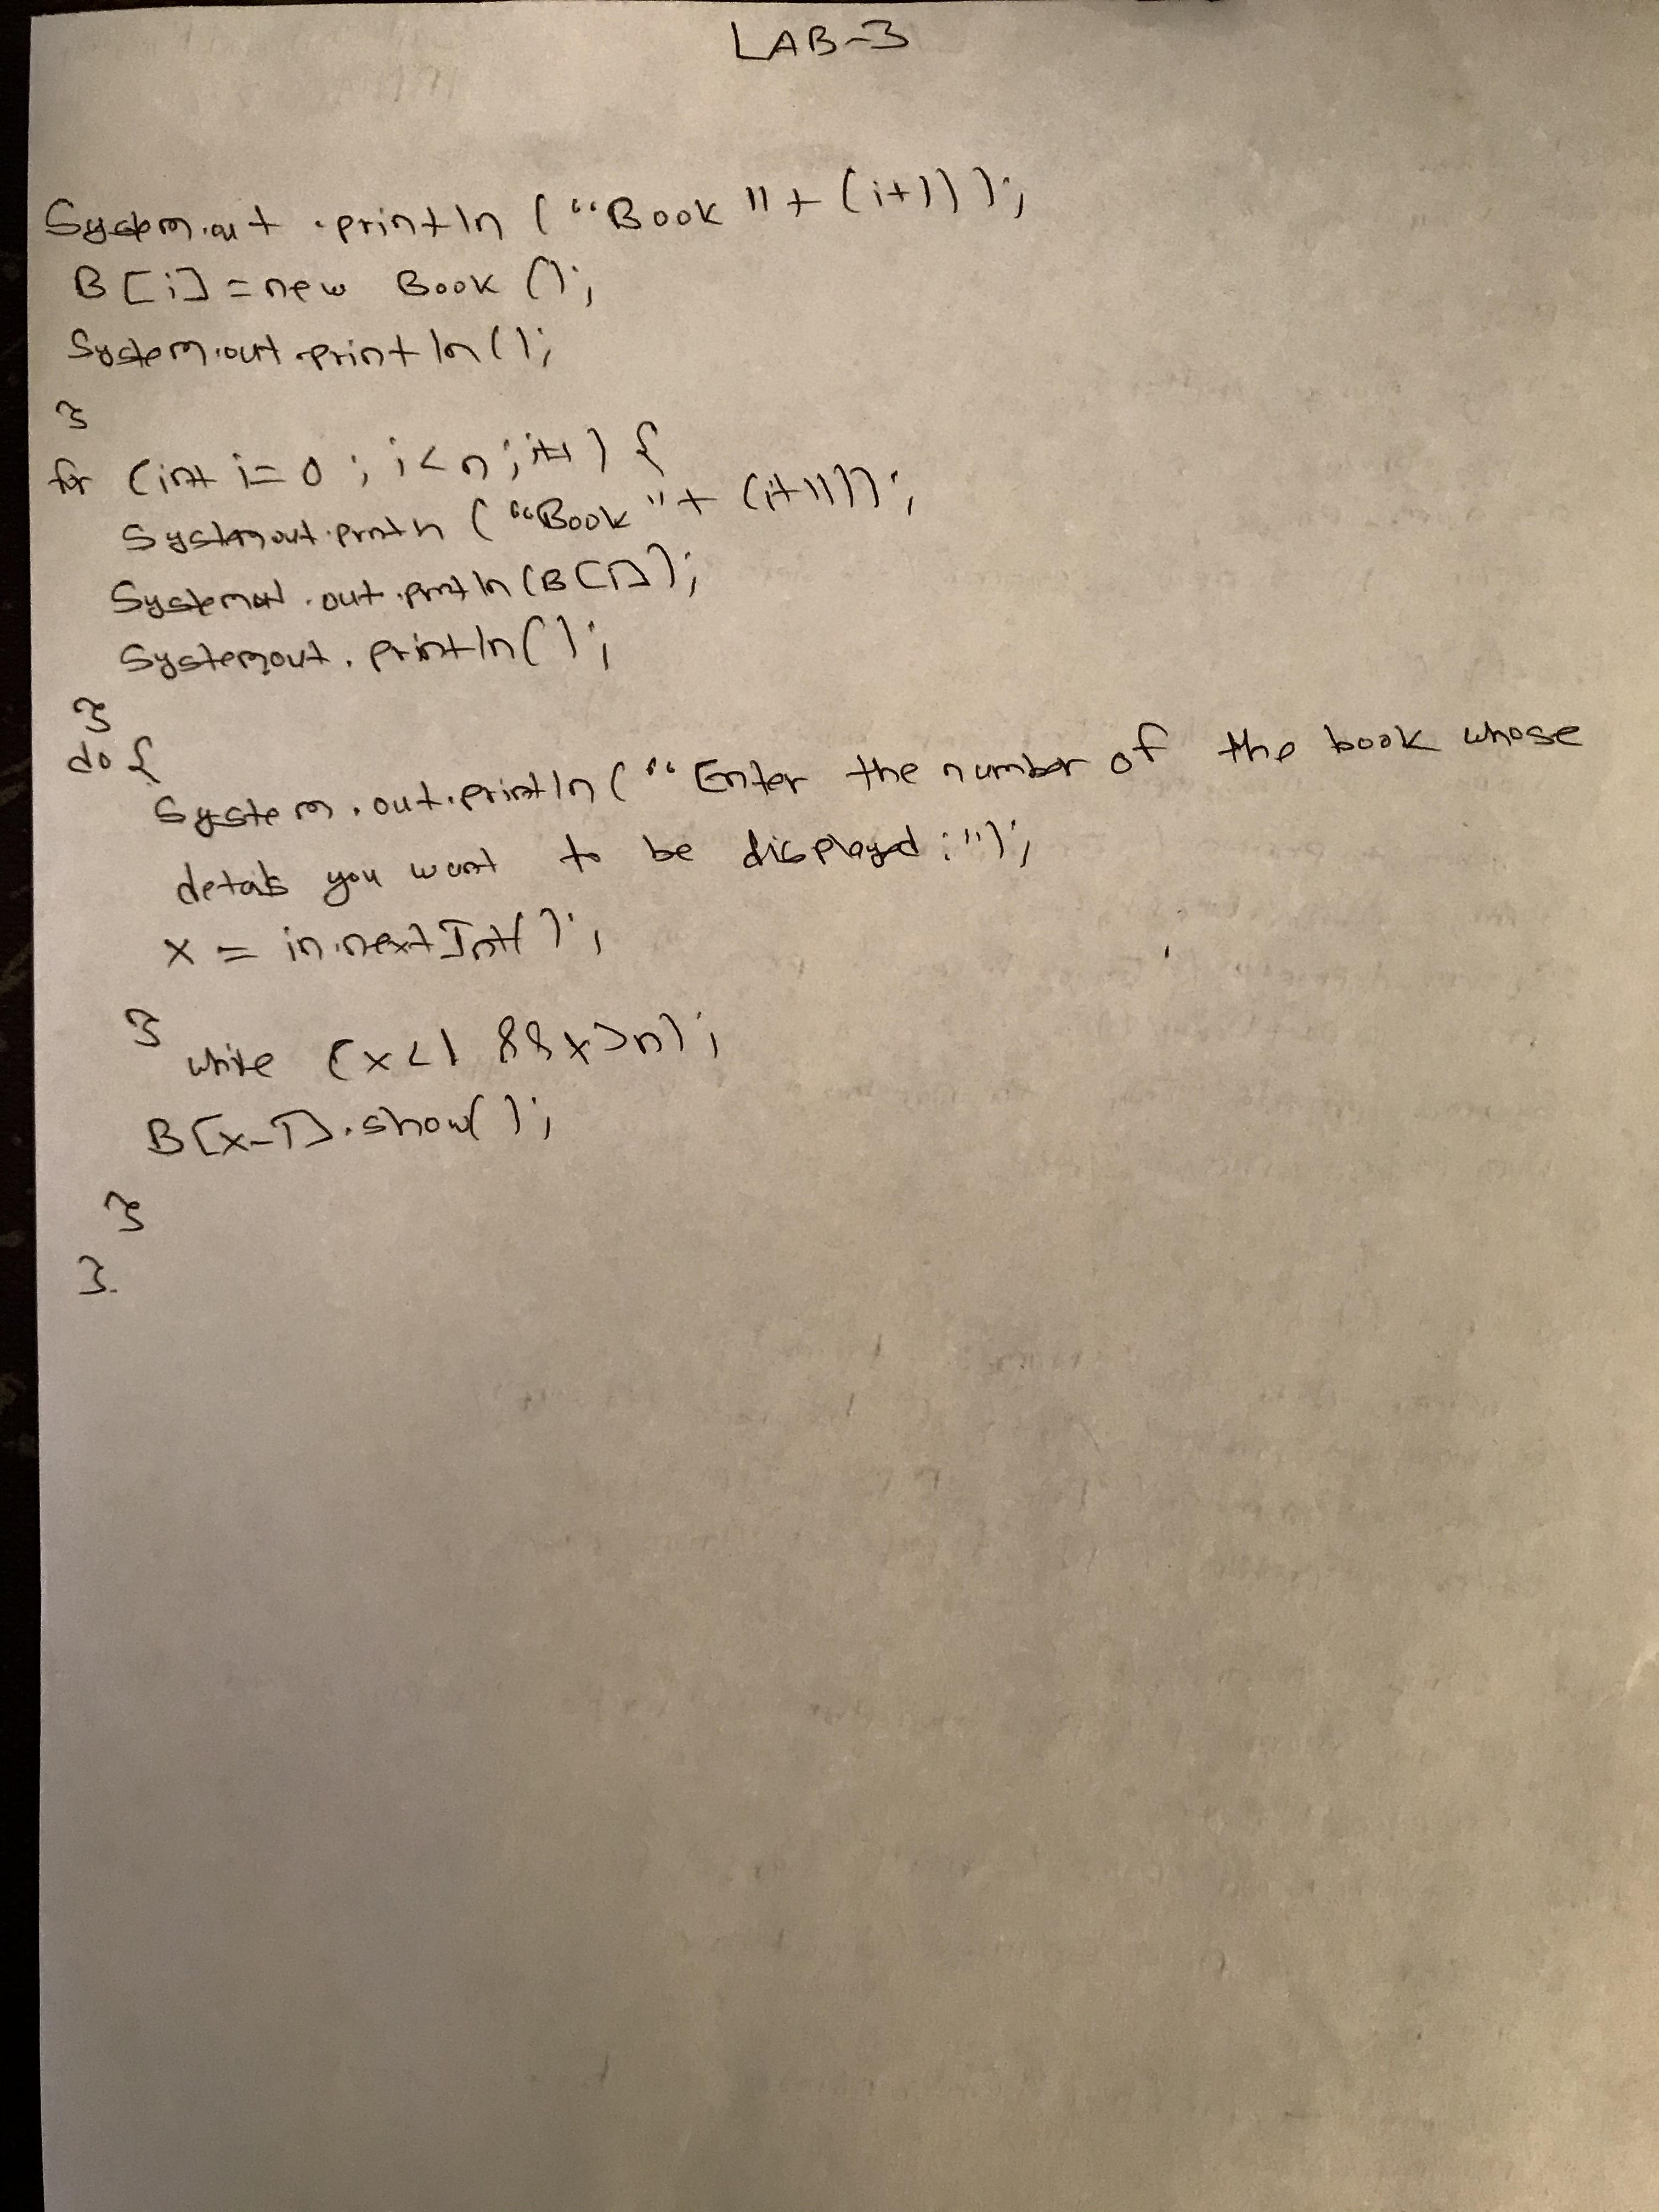 LAB-3
System.out.println ("Book "+ (i+1));
B[i] = new Book ();
System.out.println();
}
for (int i=0; i<n; i++) {
System.out.println ("Book "+ (i+1));
System.out.println (B[i]);
System.out.println();
}
do {
System.out.println ("Enter the number of the book whose
details you want to be displayed:");
x = in.nextInt();
}
while (x<1 && x>n);
B[x-1].show();
}
}